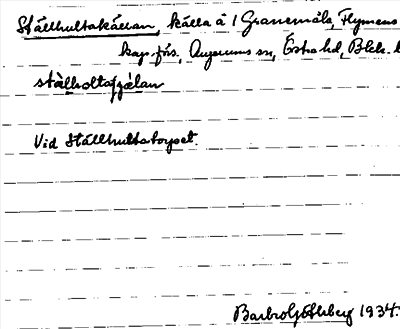 Ställhultakällan, källa å 1 Granemåla, Flymens
kap.förs. Augerums sn, Östra hd, Blek. l
Vid Ställhultatorpet.
Barbro Götlberg 1934.